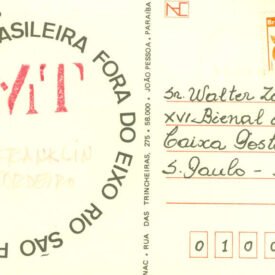 BRASILEIRA FORA DO EIXO RIO SÃO P
MT
FRANKLIN
NAC - RUA DAS TRINCHEIRAS, 275 - 58.000 - JOÃO PESSOA - PARAÍBA
Sr. Walter Za
XVI Bienal d
Caixa Posta
S. Paulo -
0 1 0 0